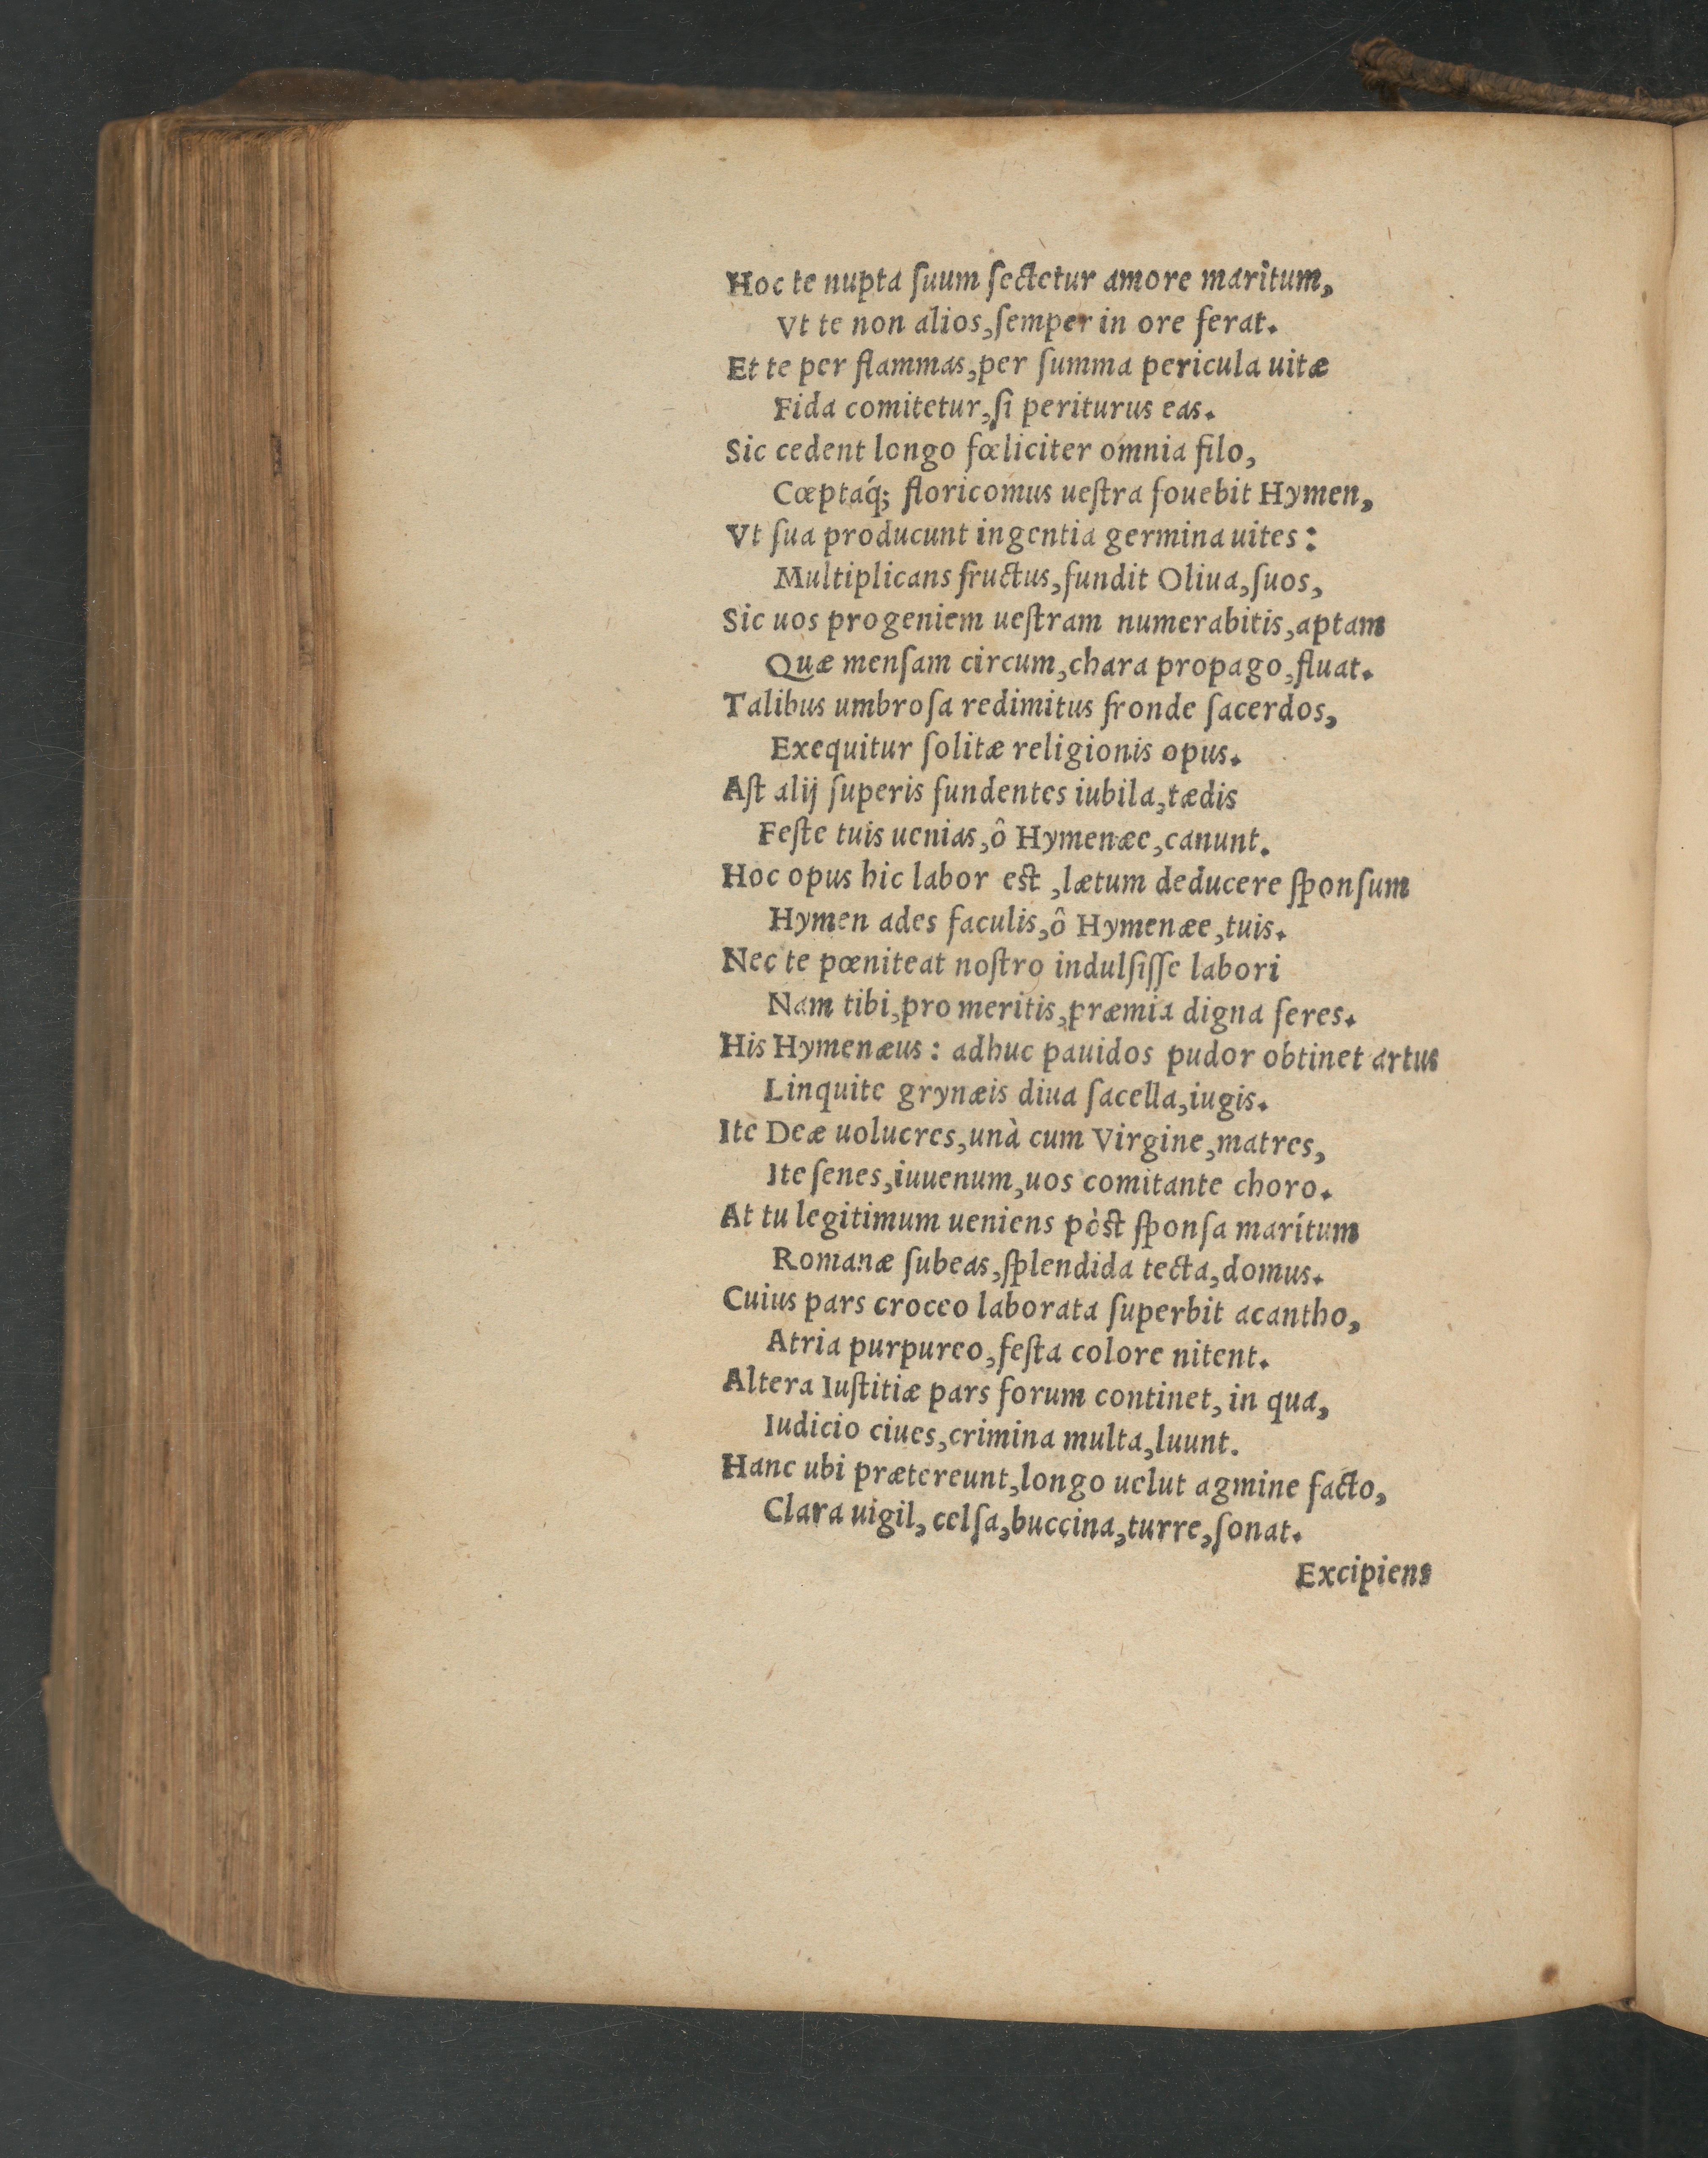 Hoc te nupta ſuum ſectetur amore maritum,
Vt te non alios, ſemper in ore ferat.
Et te per flammas, per ſumma pericula uitæ
Fida comitetur, ſi periturus eas.
Sic cedent longo fœliciter omnia filo,
Cœptaq́; floricomus ueſtra fouebit Hymen,
Vt ſua producunt ingentia germina uites:
Multiplicans fructus, fundit Oliua, ſuos,
Sic uos progeniem ueſtram numerabitis, aptam
Quæ menſam circum, chara propago, fluat.
Talibus umbroſa redimitus fronde ſacerdos,
Exequitur ſolitæ religionis opus.
Aſt alij ſuperis fundentes iubila, tædis
Feſte tuis uenias, ô Hymenæe, canunt.
Hoc opus hic labor eſt, lætum deducere ſponſum
Hymen ades faculis, ô Hymenæe, tuis.
Nec te pœniteat noſtro indulſiſſe labori
Nam tibi, pro meritis, præmia digna feres.
His Hymenæus: adhuc pauidos pudor obtinet artus
Linquite grynæis diua ſacella, iugis.
Ite Deæ uolucres, unà cum Virgine, matres,
Ite ſenes, iuuenum, uos comitante choro.
At tu legitimum ueniens pòſt ſponſa marítum
Romanæ ſubeas, ſplendida tecta, domus.
Cuius pars croceo laborata ſuperbit acantho,
Atria purpureo, feſta colore nitent.
Altera Iuſtitiæ pars forum continet, in qua,
Iudicio ciues, crimina multa, luunt.
Hanc ubi prætereunt, longo uelut agmine facto,
Clara uigil, celſa, buccina, turre, ſonat.
Excipiens